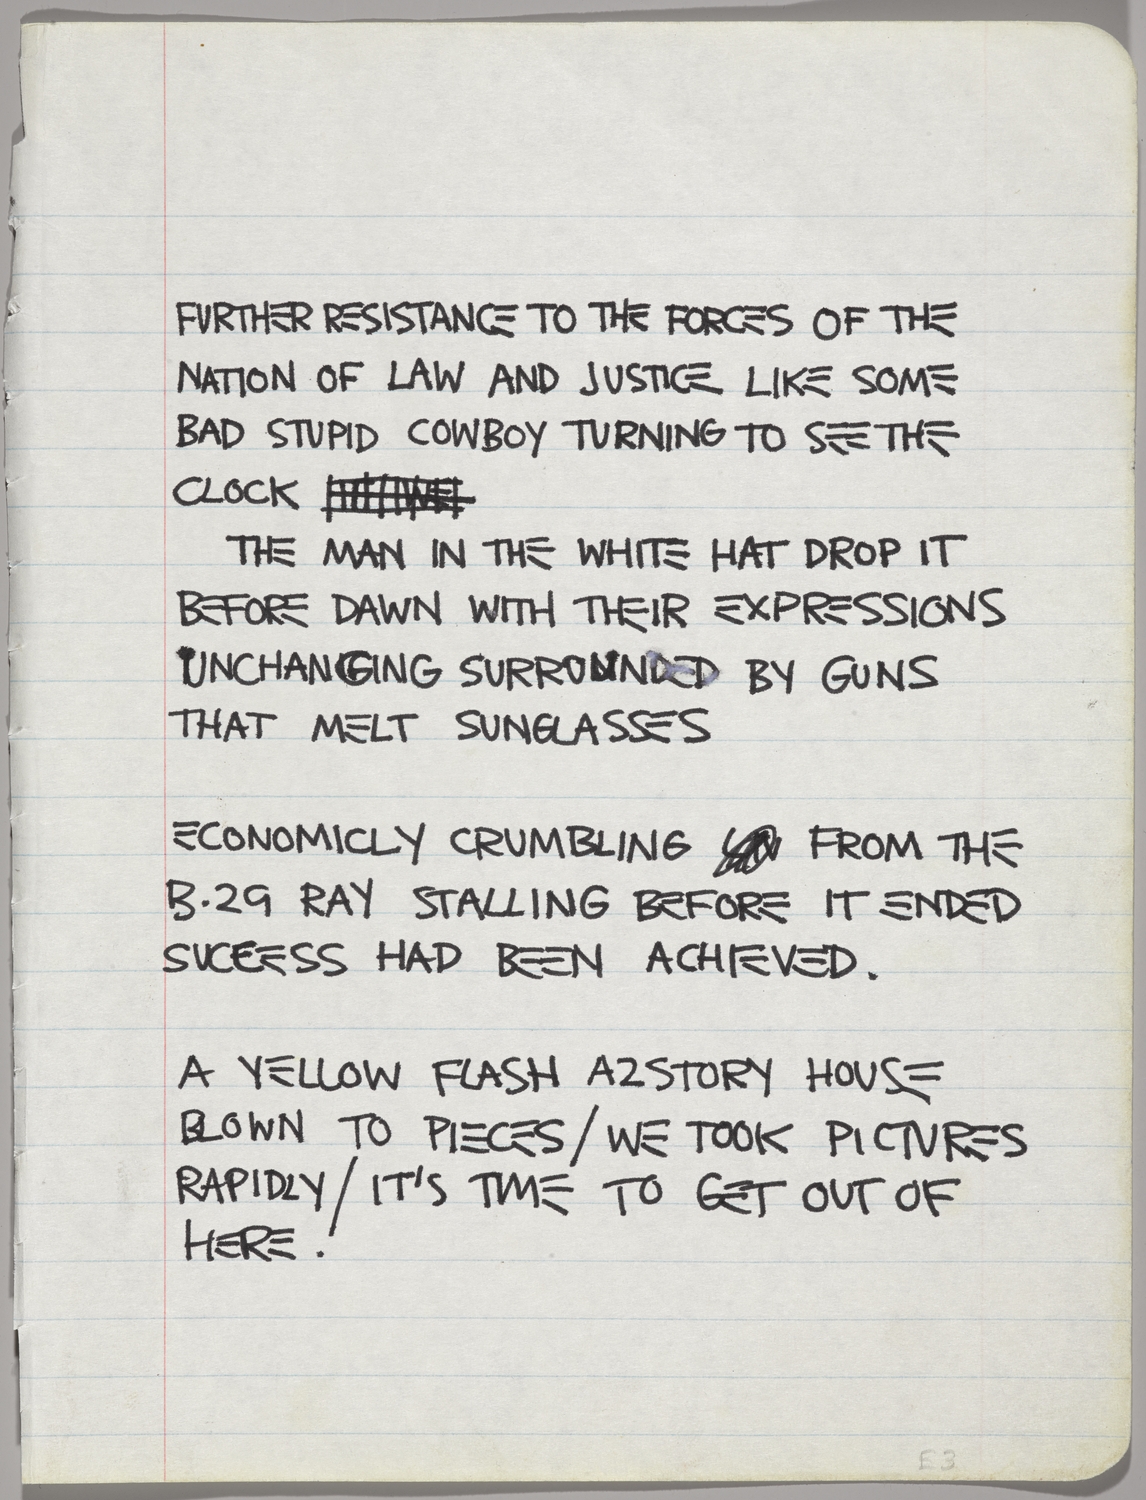 FURTHER RESISTANCE TO THE FORCES OF THE
NATION OF LAW AND JUSTICE LIKE SOME
BAD STUPID COWBOY TURNING TO SEE THE
CLOCK
THE MAN IN THE WHITE HAT DROP IT
BEFORE DAWN WITH THEIR EXPRESSIONS
UNCHANGING SURROUNDED BY GUNS
THAT MELT SUNGLASSES
ECONOMICLY CRUMBLING FROM THE
B.29 RAY STALLING BEFORE IT ENDED
SUCEESS HAD BEEN ACHIEVED.
A YELLOW FLASH A2STORY HOUSE
BLOWN TO PIECES/WE TOOK PICTURES
RAPIDLY/IT'S TIME TO GET OUT OF
HERE.
E3